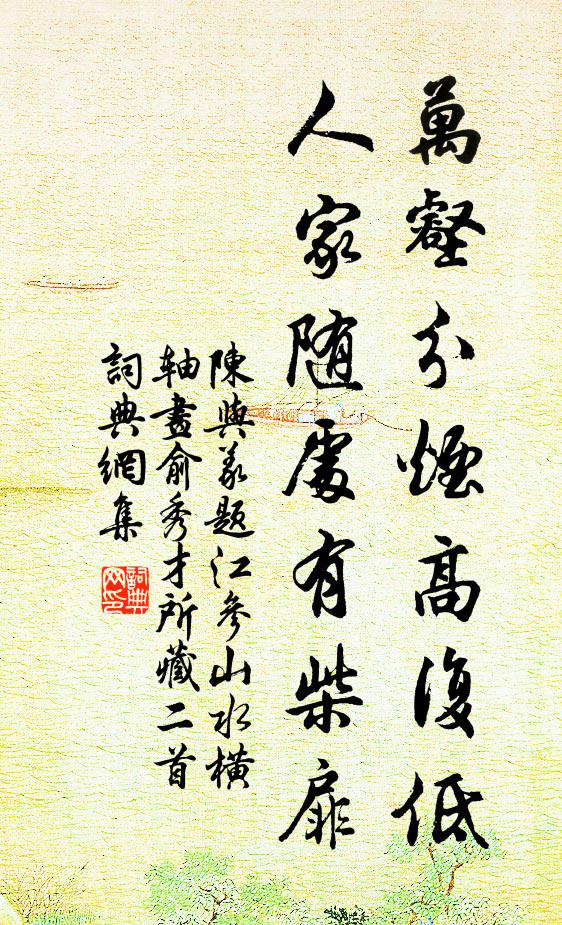 萬壑分煙高復低
人家随處有柴扉
陳與義題江參山水橫
轴畫俞秀才所藏二首
詞典網集
詞典
网印